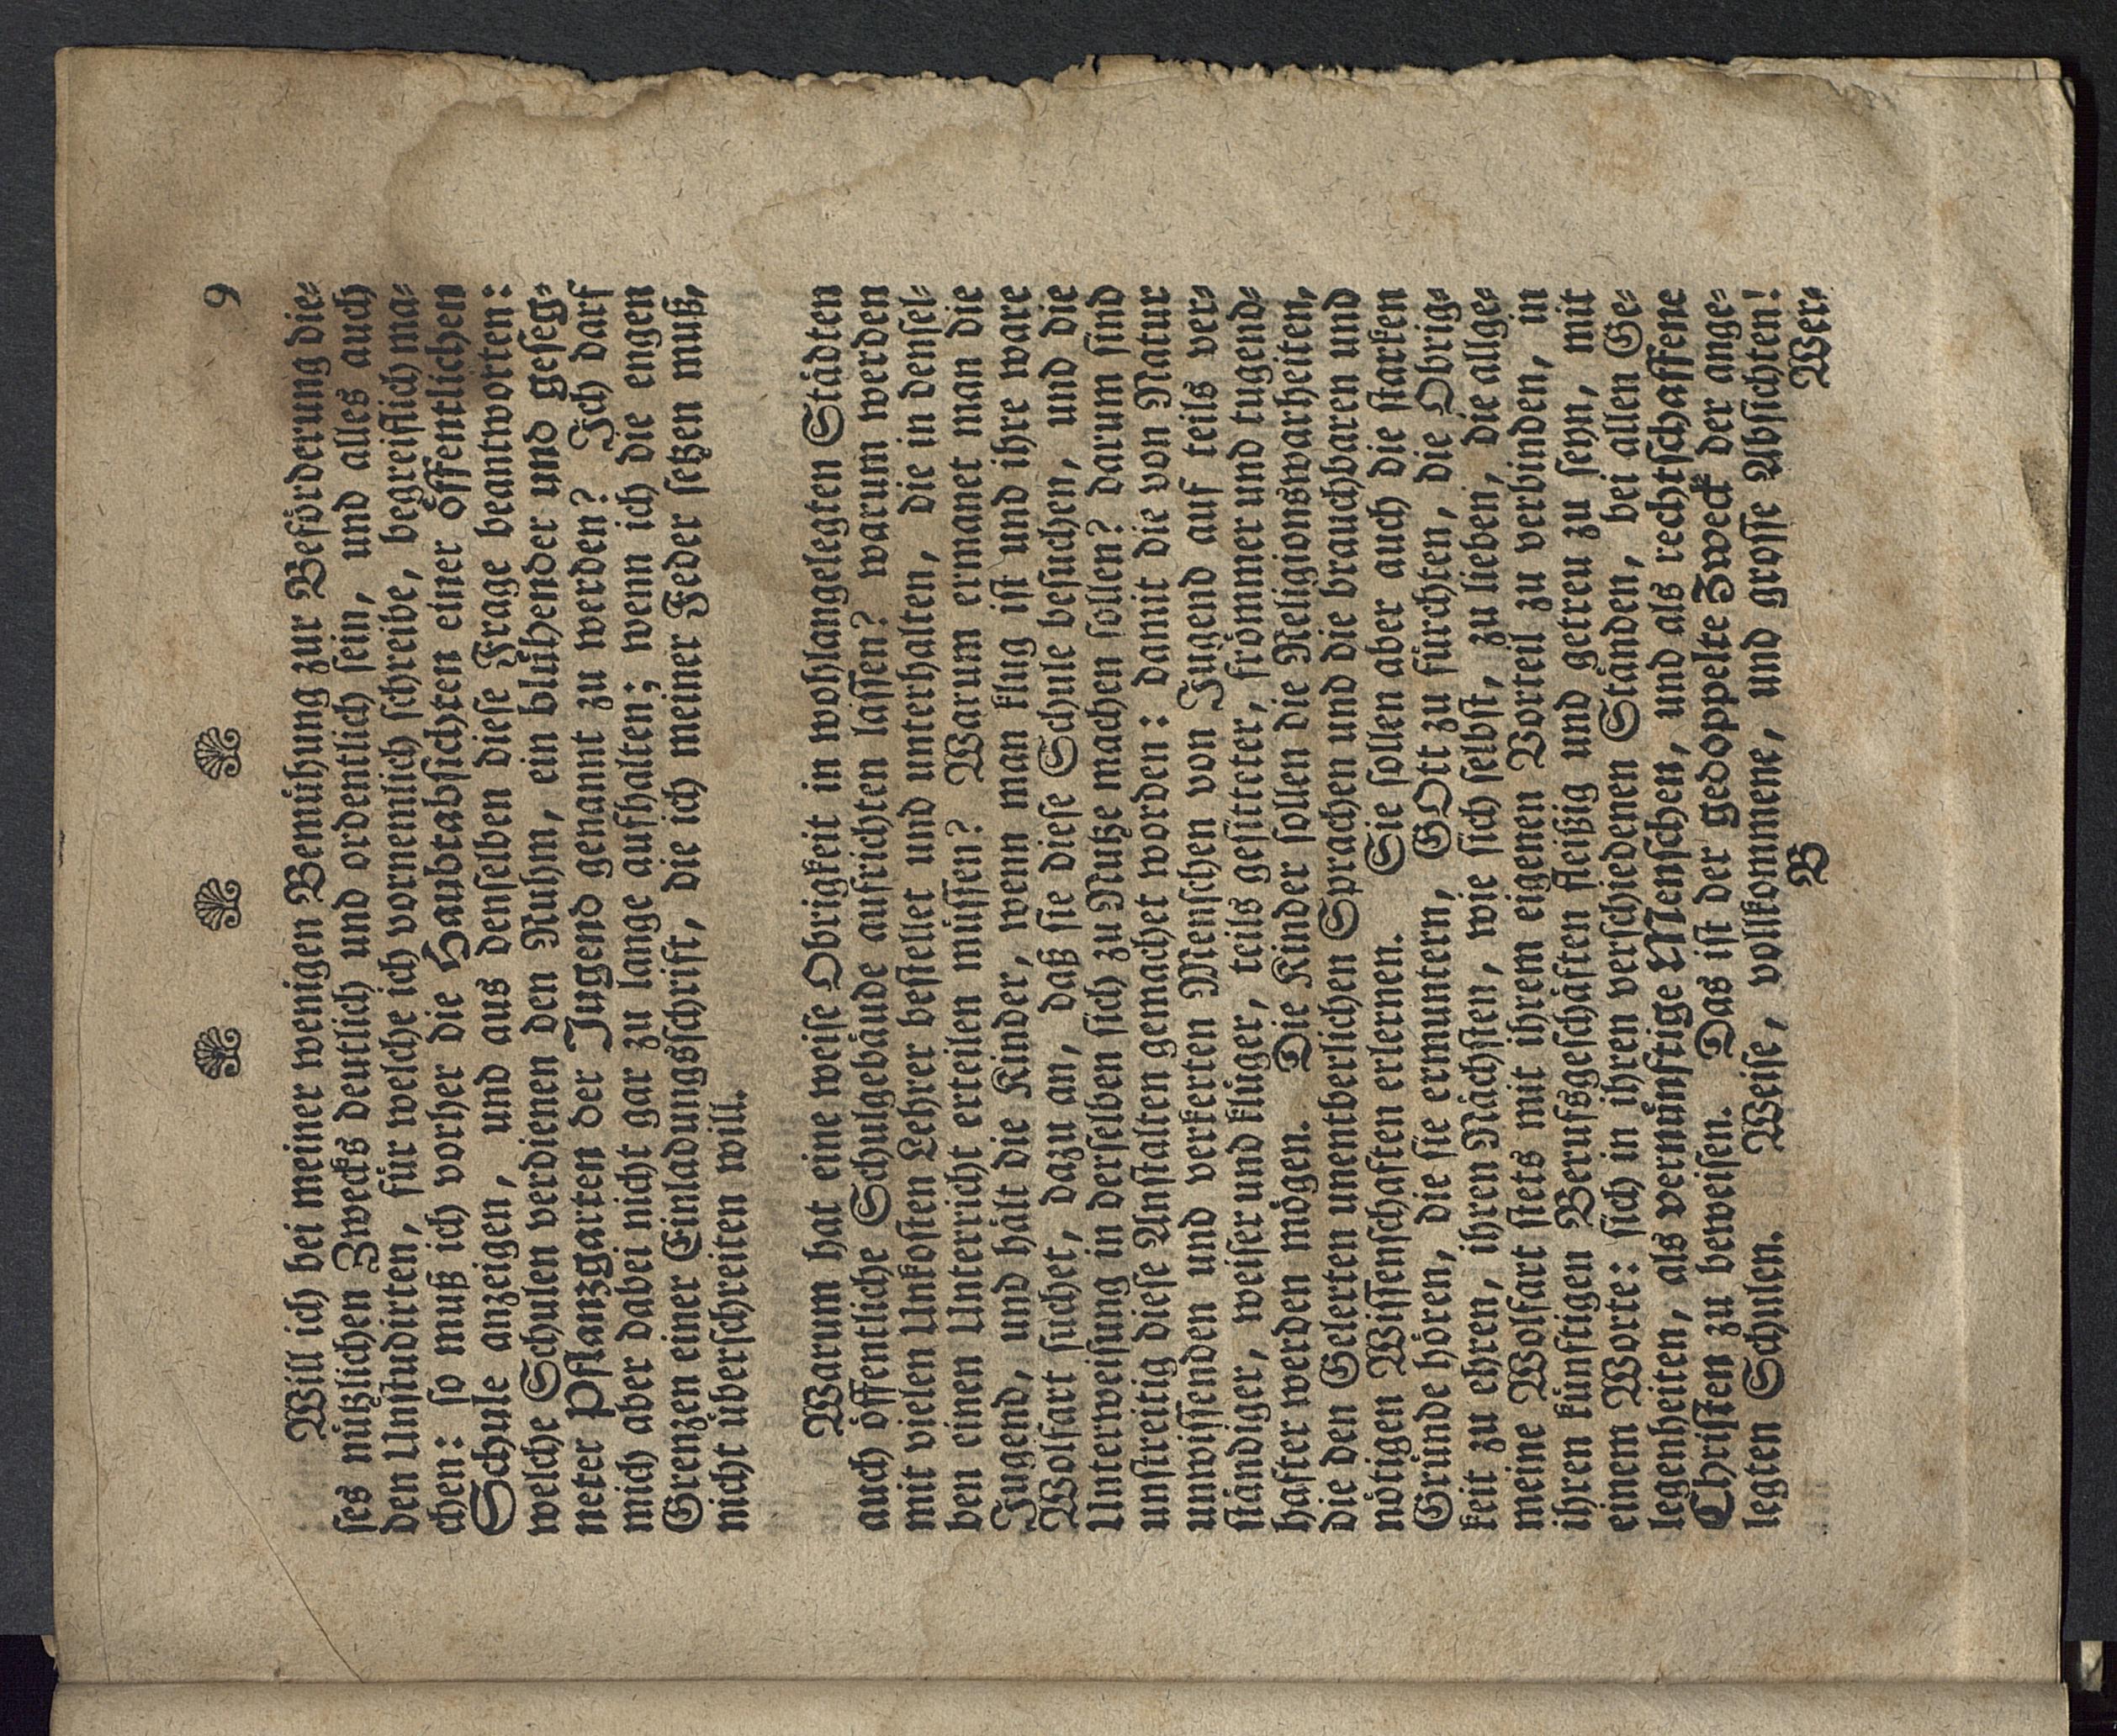 9
Will ich bei meiner wenigen Bemühung zur Beförderung die-
ses nützlichen Zwecks deutlich und ordentlich sein, und alles auch
den Unstudirten, für welche ich vornemlich schreibe, begreiflich ma-
chen: so muß ich vorher die Haubtabsichten einer öffentlichen
Schule anzeigen, und aus denselben diese Frage beantworten:
welche Schulen verdienen den Ruhm, ein blühender und geseg-
neter Pflanzgarten der Jugend genannt zu werden? Ich darf
mich aber dabei nicht gar zu lange aufhalten; wenn ich die engen
Grenzen einer Einladungsschrift, die ich meiner Feder setzen muß,
nicht überschreiten will.
Warum hat eine weise Obrigkeit in wohlangelegten Städten
auch öffentliche Schulgebäude aufrichten lassen? warum werden
mit vielen Unkosten Lehrer bestellet und unterhalten, die in densel-
ben einen Unterricht erteilen müssen? Warum ermanet man die
Jugend, und hält die Kinder, wenn man klug ist und ihre ware
Wolfart suchet, dazu an, daß sie diese Schule besuchen, und die
Unterweisung in derselben sich zu Nutze machen sollen? darum sind
unstreitig diese Anstalten gemachet worden: damit die von Natur
unwissenden und verkerten Menschen von Jugend auf teils ver-
ständiger, weiser und klüger, teils gesitteter, frömmer und tugend-
hafter werden mögen. Die Kinder sollen die Religionswarheiten,
die den Gelerten unentberlichen Sprachen und die brauchbaren und
nötigen Wissenschaften erlernen. Sie sollen aber auch die starken
Gründe hören, die sie ermuntern, GOtt zu fürchten, die Obrig-
keit zu ehren, ihren Nächsten, wie sich selbst, zu lieben, die allge-
meine Wolfart stets mit ihrem eigenen Vorteil zu verbinden, in
ihren künftigen Berufsgeschäften fleißig und getreu zu seyn, mit
einem Worte: sich in ihren verschiedenen Ständen, bei allen Ge-
legenheiten, als vernünftige Menschen, und als rechtschaffene
Christen zu beweisen. Das ist der gedoppelte Zweck der ange-
legten Schulen. Weise, vollkommene, und grosse Absichten!
B Wer-